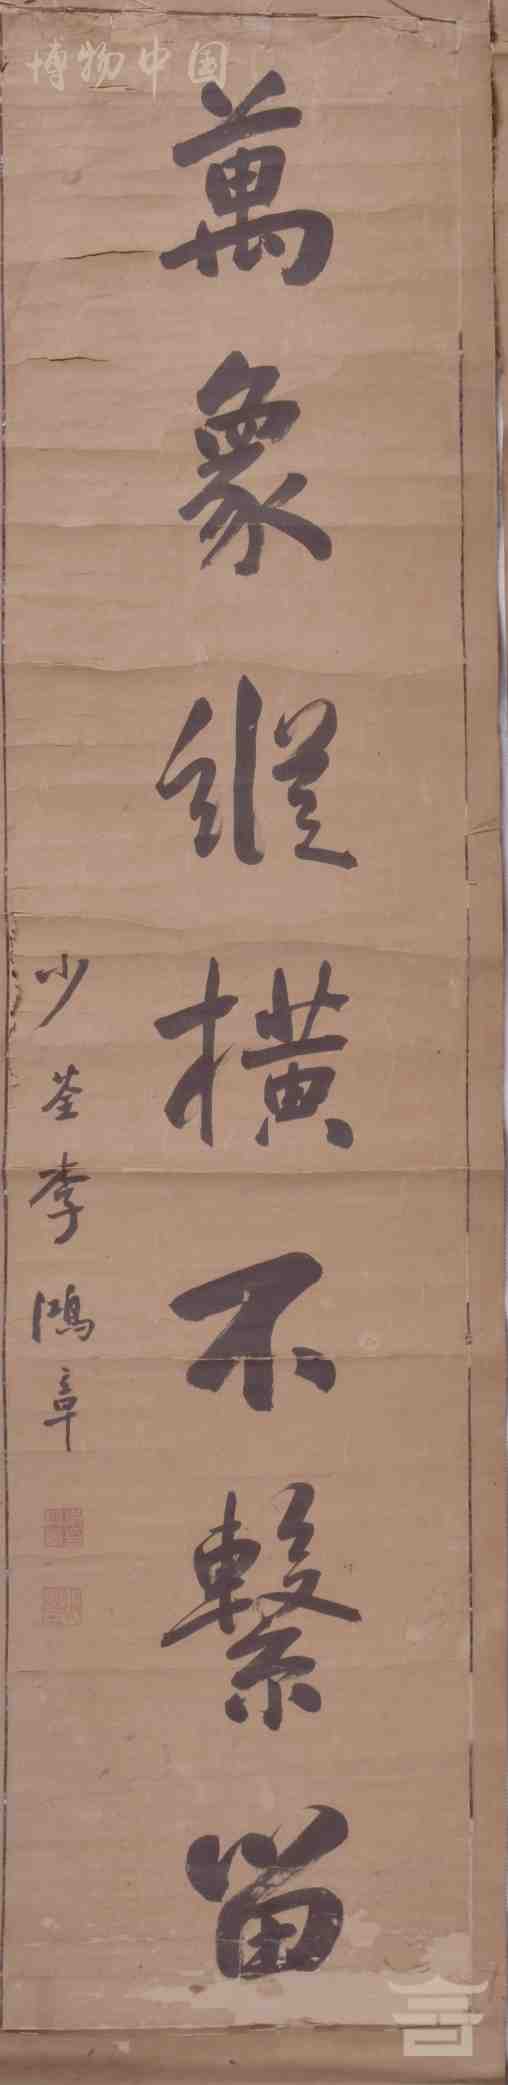 博物中国
萬象縱橫不繫留
少荃李鴻章